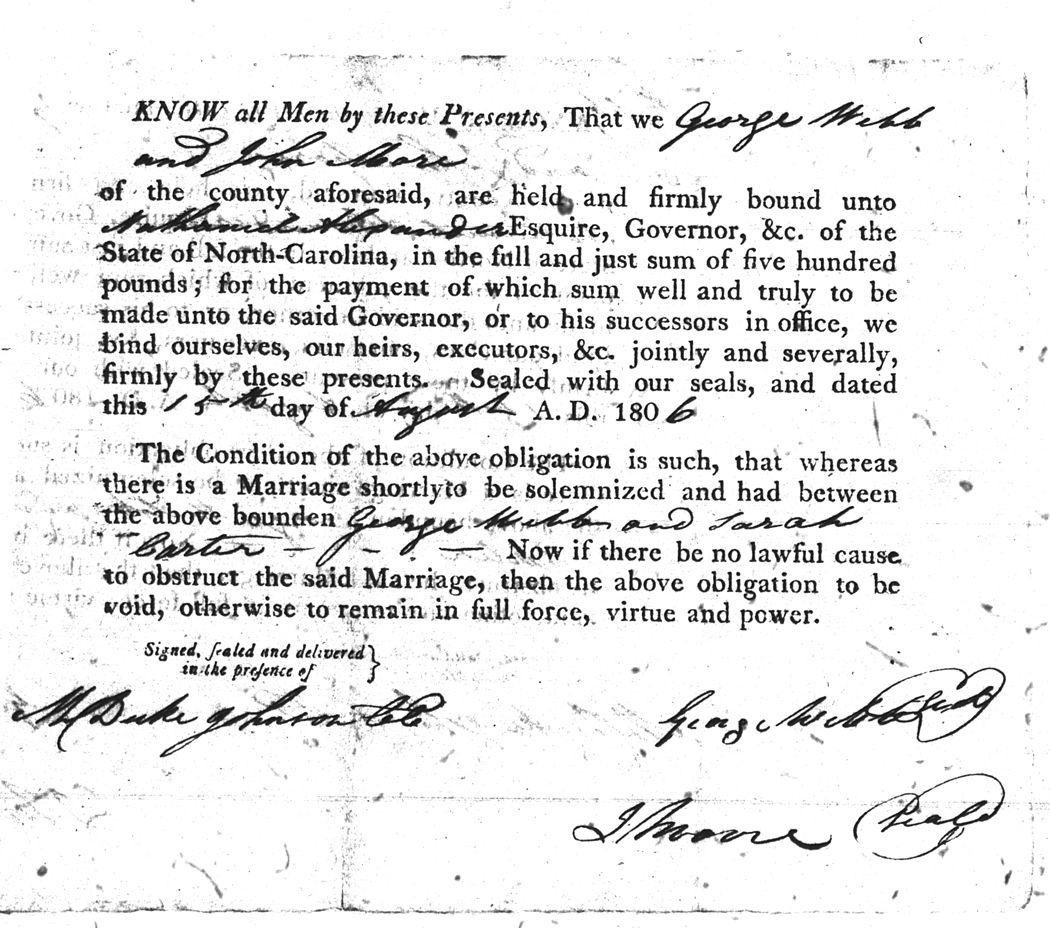 KNOW all Men by these Presents, That we George Webb
and John More
of the county aforesaid, are held and firmly bound unto
Nathaniel Alexander Esquire, Governor, &c. of the
State of North-Carolina, in the full and just sum of five hundred
pounds; for the payment of which sum well and truly to be
made unto the said Governor, or to his successors in office, we
bind ourselves, our heirs, executors, &c. jointly and severally,
firmly by these presents. Sealed with our seals, and dated
this 15th day of August A. D. 1806
The Condition of the above obligation is such, that whereas
there is a Marriage shortly to be solemnized and had between
the above bounden George Webb and Sarah
Carter — Now if there be no lawful cause
to obstruct the said Marriage, then the above obligation to be
void, otherwise to remain in full force, virtue and power.
Signed, sealed and delivered
in the presence of
M Duke Johnson CC
George Webb Seal
J Moore Seal